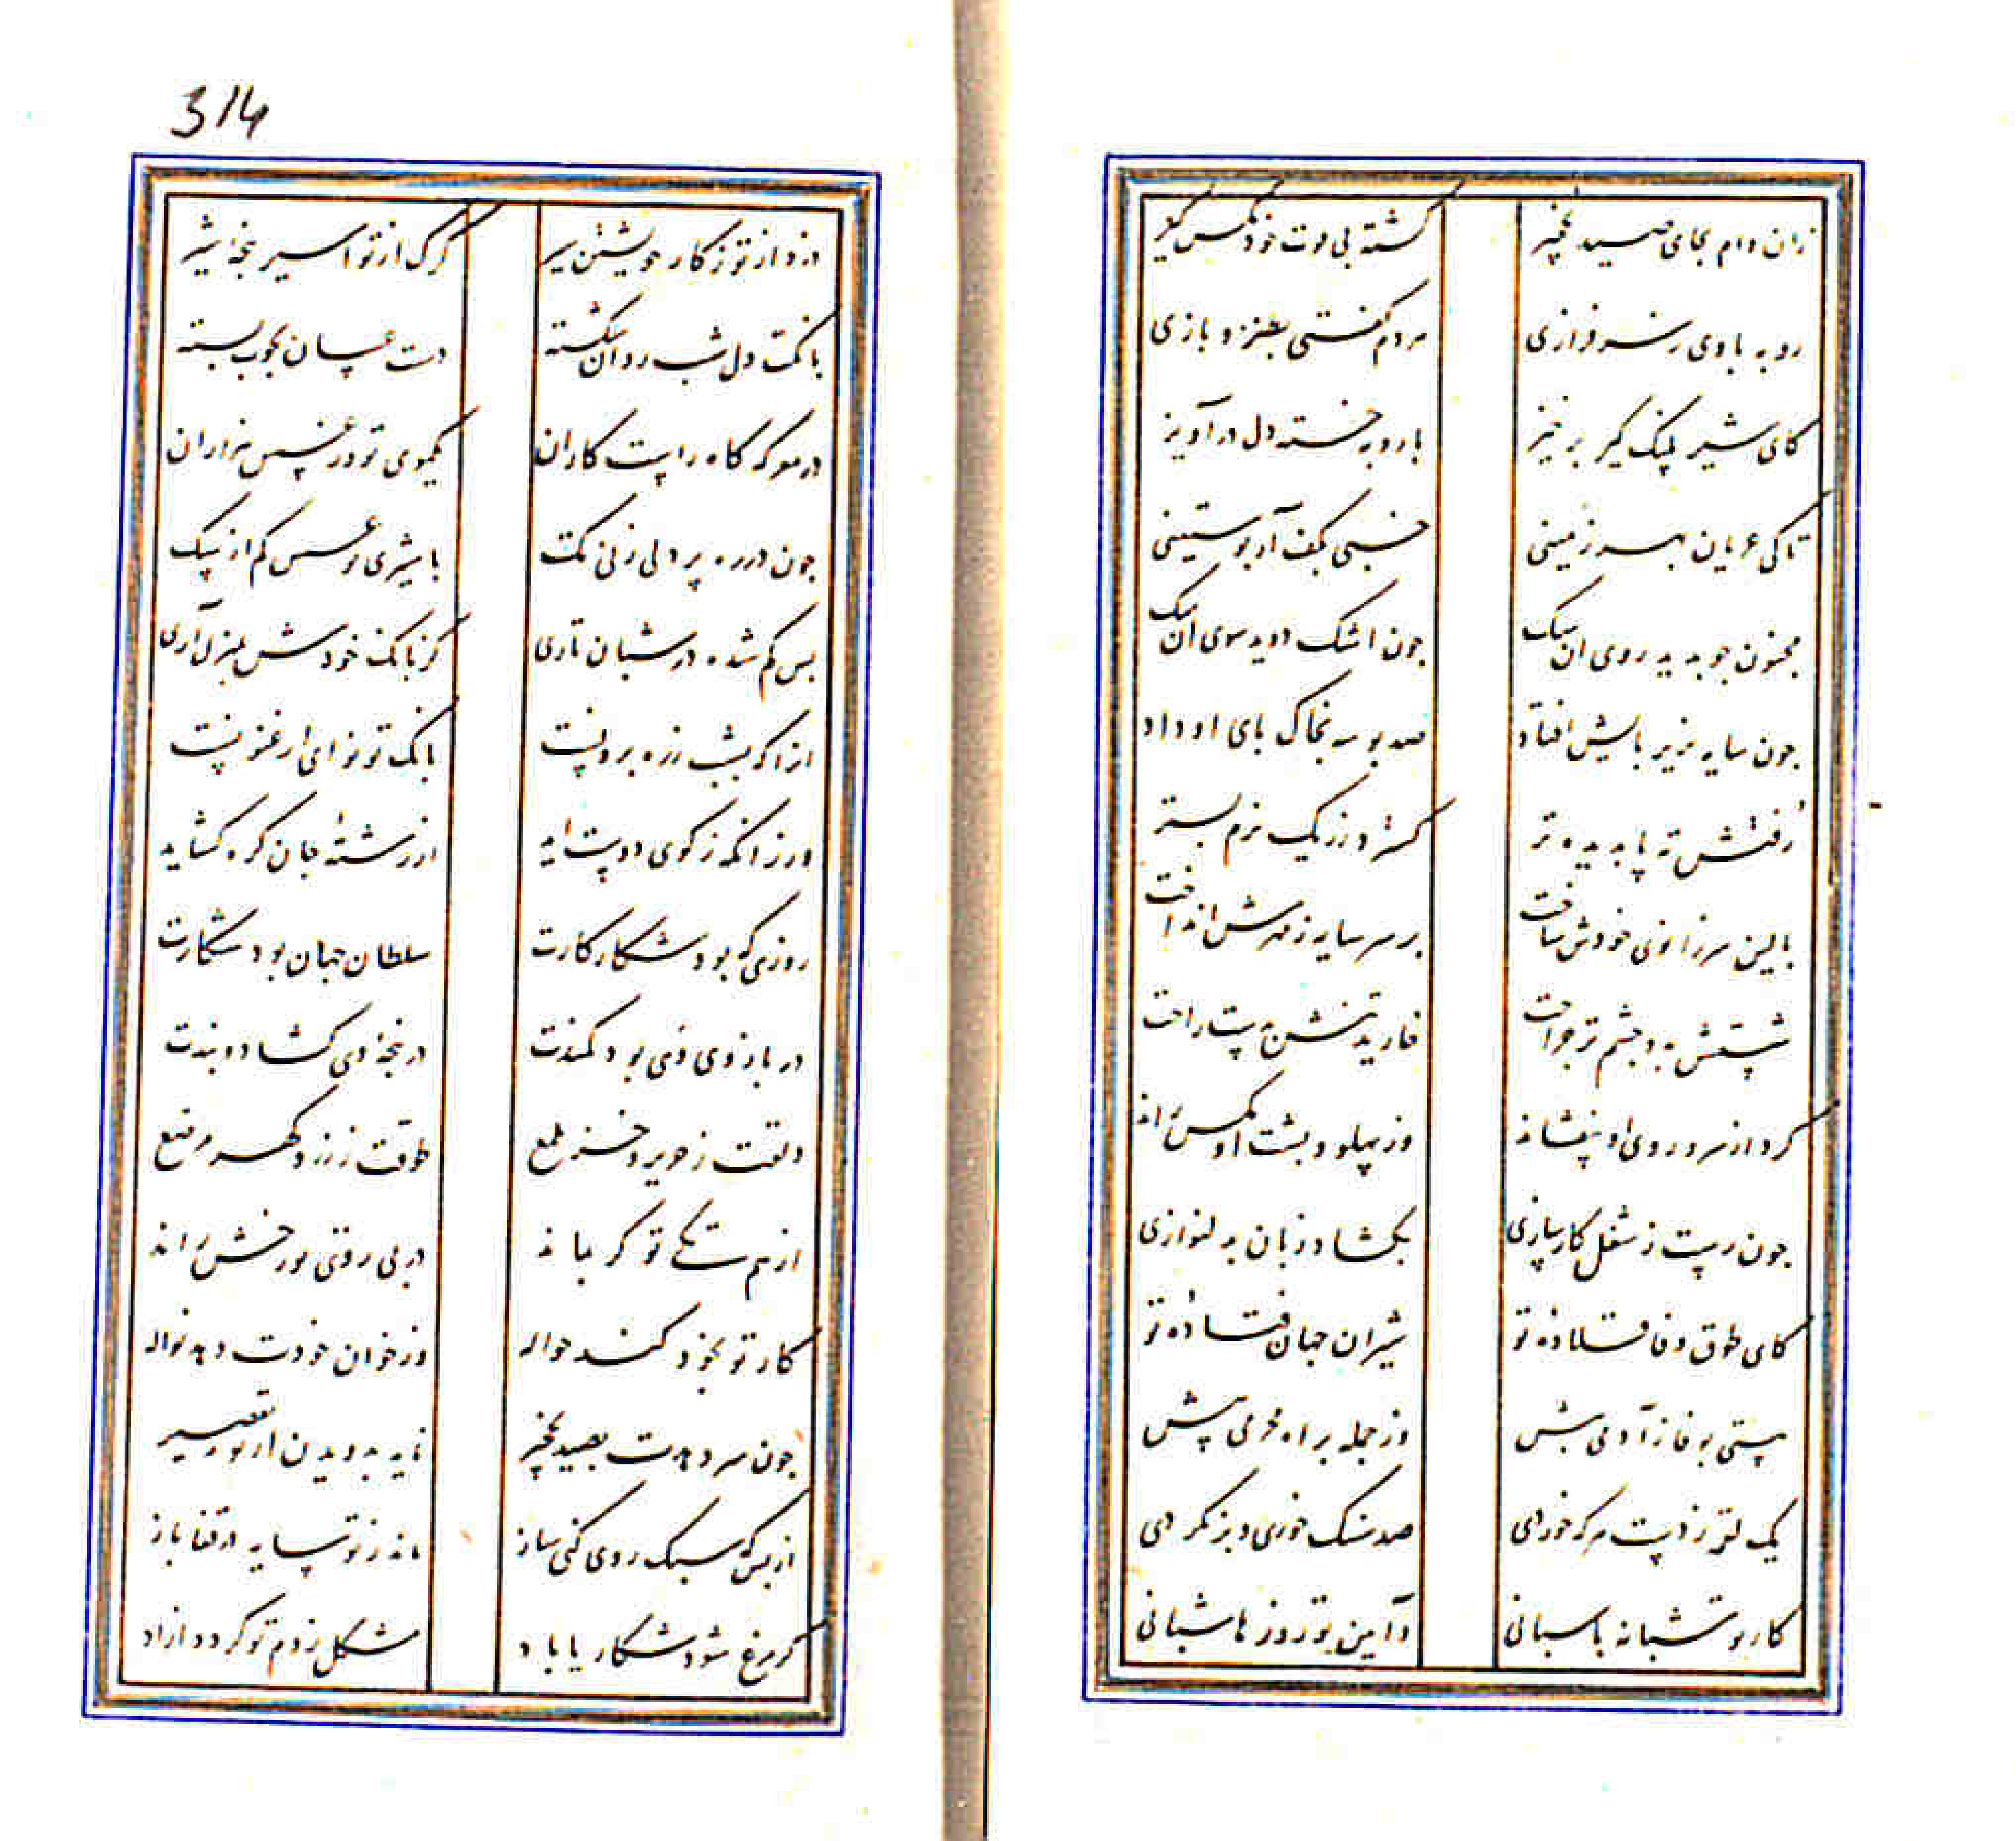 زان دام بجای صید نخچیر گشته بی لوت خود مکس گیر
روبه بادی ز سرفرازی هر دم گفتی بطنز و بازی
کای شیر پلنگ گیر برخیز با روبه خسته دل در آویز
تا کی عریان بهر زمینی خسبی بکف آر پوستینی
مجنون چو بدید روی آن سک چون اشک دوید سوی آن سک
چون سایه بزیر پایش افتاد صد بوسه بخاک پای او داد
رفتش ته پا بدیده تر گسترد ز ریک نرم بستر
بالین سر زانوی خودش ساخت بر سر سایه ز مهرش انداخت
شستش به دو چشم تر جراحت خارید تنش بدست راحت
گرد از سر و روی او بیفشاند وز پهلو و پشت او مکس راند
چون رست ز شغل کارسازی بکشاد زبان بدلنوازی
کای طوق وفا قلاده تو شیران جهان فتاده تو
هستی بوفا ز آدمی بیش وز جمله براه محرمی پیش
یک لقمه ز دست هر که خوردی صد سنک خوری و بر نگردی
کار تو شبانه پاسبانی و آیین تو روزها شبانی
314
دزد از تو ز کار خویشتن سیر گرک از تو اسیر پنجه شیر
بانکت دل شب روان شکسته دست عسسان بچوب بسته
در معرکه گاه راست کاران یکموی تو و ز عسس هزاران
چون در ره پر دلی زنی تک با شیری و عسس کم از سک
بس گم شده در شبان تاری کز بانک خودش بمنزل آری
آنرا که بشب ز ره برونست بانک تو نوای ارغنونست
ور زانکه ز کوی دوست آید از رشته جان گره گشاید
روزی که بود شکار کارت سلطان جهان بود شکارت
در بازوی وی بود کمندت در پنجه وی گشاد و بندت
دلقت ز حریر و خز ملمع طوقت ز زر و گهر مرصع
از هم تکی تو گر بماند در پی روی تو رخش راند
کار تو بخود کند حواله وز خوان خودت دهد نواله
چون سر دهدت بصید نخچیر ناید بدویدن از تو تقصیر
از بس که سبک روی کنی ساز ماند ز تو سایه در قفا باز
گر مرغ شود شکار یا باد مشکل ز دم تو گردد آزاد